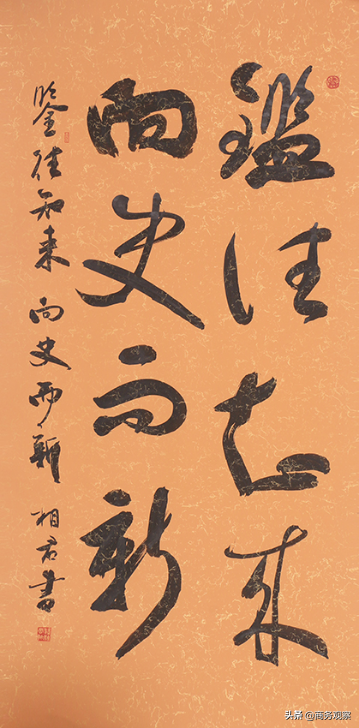 鑑往知来
向史而新
鉴往知来 向史而新 相君书
头条 @商务观察